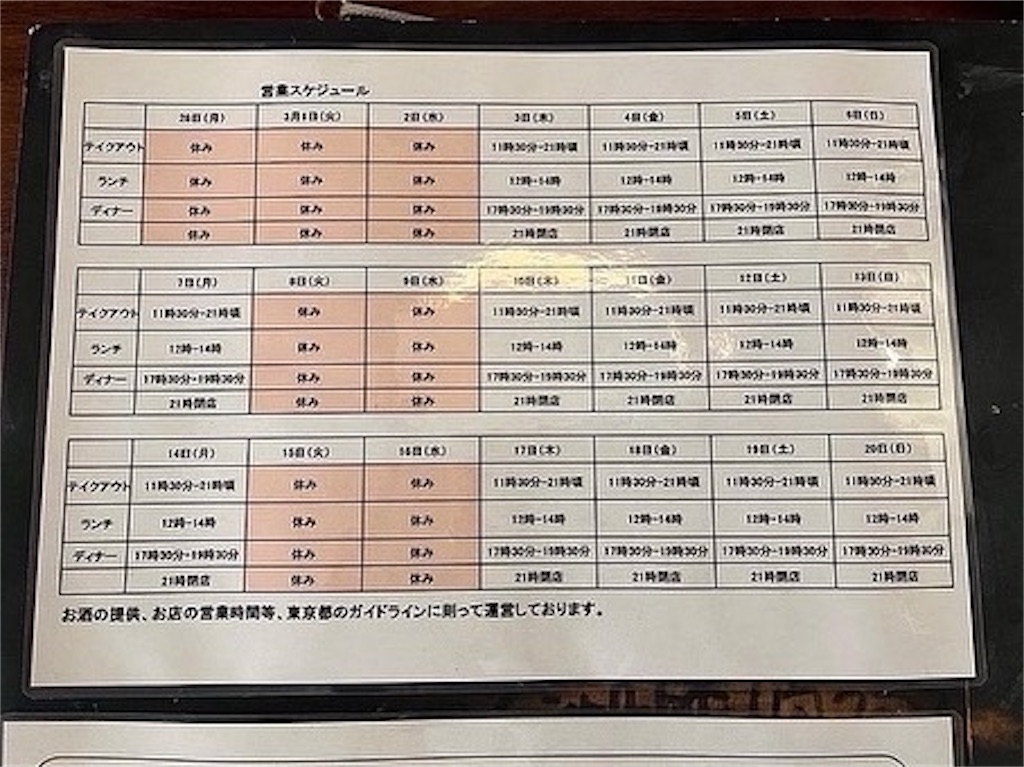 営業スケジュール
28日(月) 3月1日(火) 2日(水) 3日(木) 4日(金) 5日(土) 6日(日)
テイクアウト 休み 休み 休み 11時30分-21時頃 11時30分-21時頃 11時30分-21時頃 11時30分-21時頃
ランチ 休み 休み 休み 12時-14時 12時-14時 12時-14時 12時-14時
ディナー 休み 休み 休み 17時30分-19時30分 17時30分-19時30分 17時30分-19時30分 17時30分-19時30分
休み 休み 休み 21時閉店 21時閉店 21時閉店 21時閉店
7日(月) 8日(火) 9日(水) 10日(木) 11日(金) 12日(土) 13日(日)
テイクアウト 11時30分-21時頃 休み 休み 11時30分-21時頃 11時30分-21時頃 11時30分-21時頃 11時30分-21時頃
ランチ 12時-14時 休み 休み 12時-14時 12時-14時 12時-14時 12時-14時
ディナー 17時30分-19時30分 休み 休み 17時30分-19時30分 17時30分-19時30分 17時30分-19時30分 17時30分-19時30分
21時閉店 休み 休み 21時閉店 21時閉店 21時閉店 21時閉店
14日(月) 15日(火) 16日(水) 17日(木) 18日(金) 19日(土) 20日(日)
テイクアウト 11時30分-21時頃 休み 休み 11時30分-21時頃 11時30分-21時頃 11時30分-21時頃 11時30分-21時頃
ランチ 12時-14時 休み 休み 12時-14時 12時-14時 12時-14時 12時-14時
ディナー 17時30分-19時30分 休み 休み 17時30分-19時30分 17時30分-19時30分 17時30分-19時30分 17時30分-19時30分
21時閉店 休み 休み 21時閉店 21時閉店 21時閉店 21時閉店
お酒の提供、お店の営業時間等、東京都のガイドラインに則って運営しております。